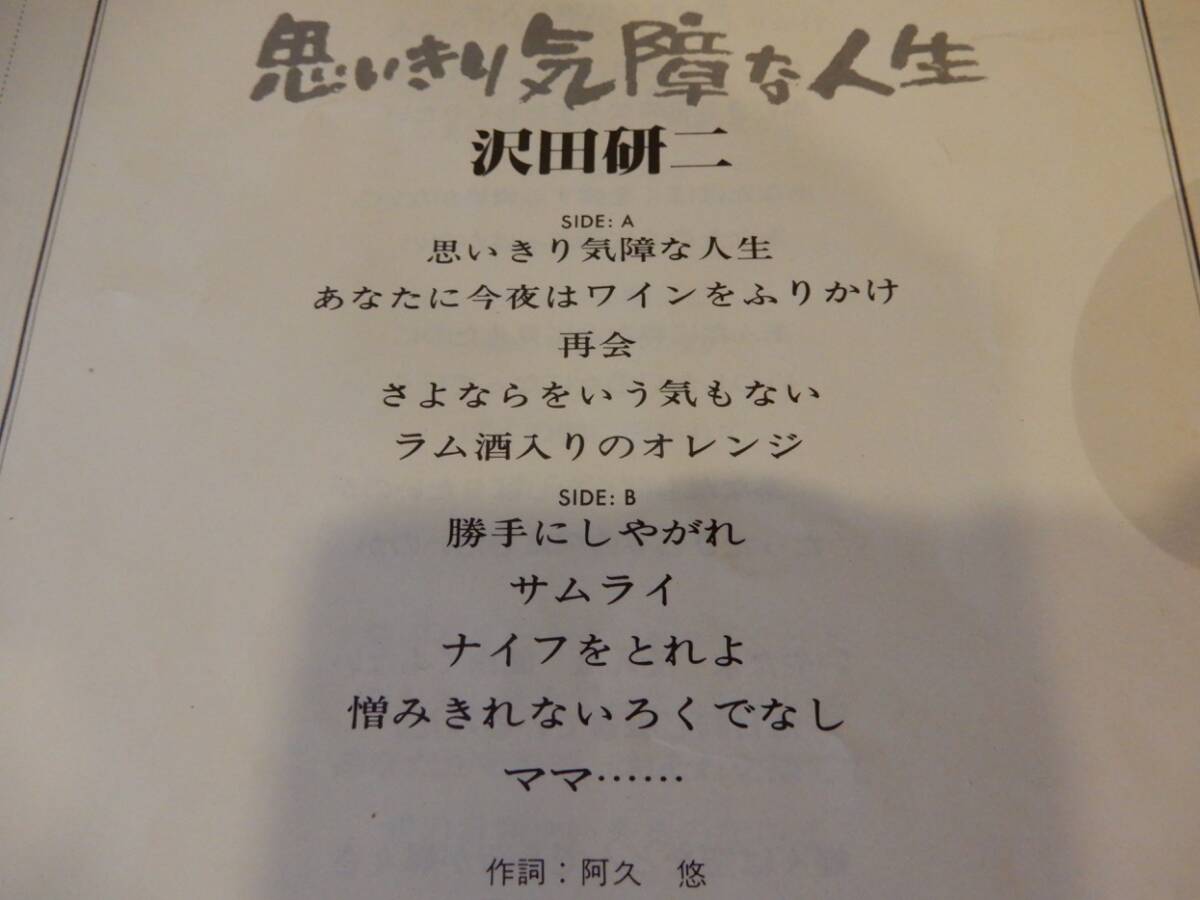 思いきり気障な人生
沢田研二
SIDE: A
思いきり気障な人生
あなたに今夜はワインをふりかけ
再会
さよならをいう気もない
ラム酒入りのオレンジ
SIDE: B
勝手にしやがれ
サムライ
ナイフをとれよ
憎みきれないろくでなし
ママ……
作詞：阿久　悠